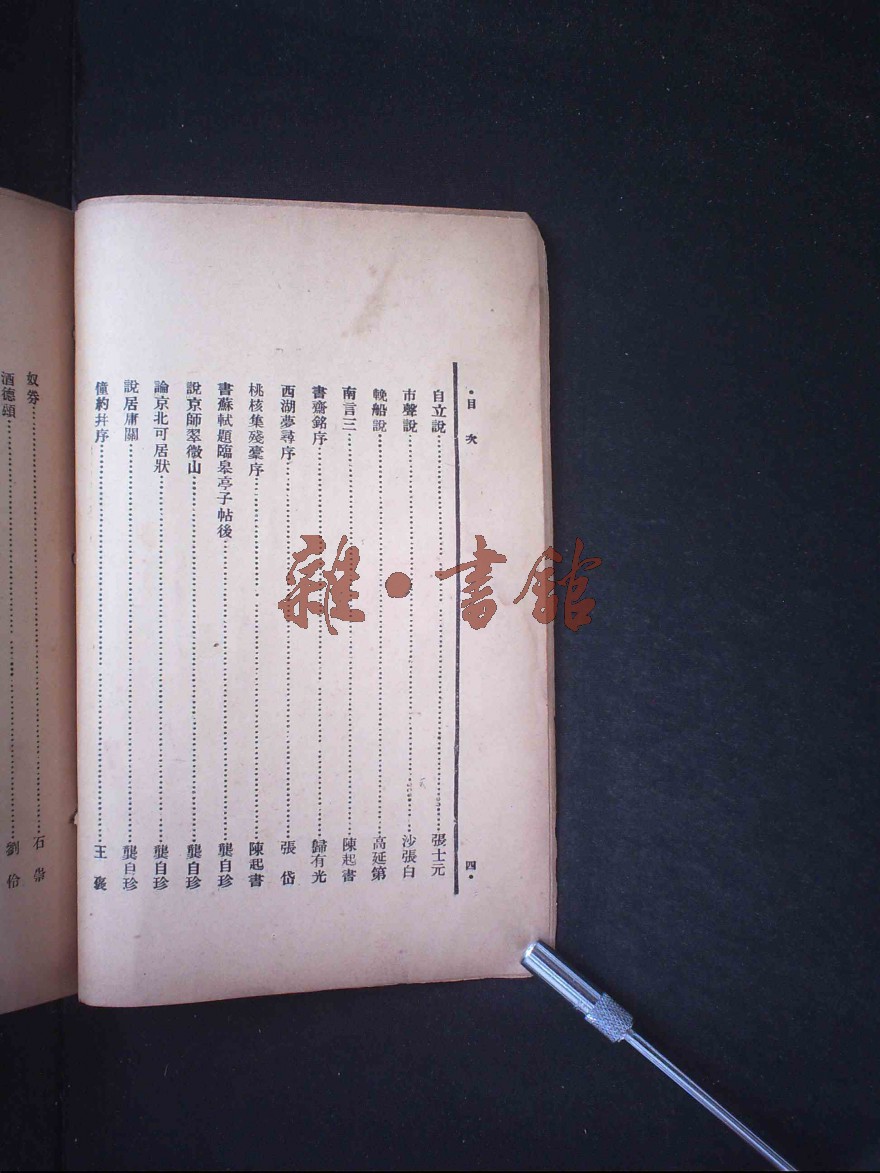 目次 四
自立說 張士元
市聲說 沙張白
輓船說 高延第
南言三 陳起書
書齋銘序 歸有光
西湖夢尋序 張岱
桃核集殘稾序 陳起書
書蘇軾題臨皋亭子帖後 龔自珍
說京師翠微山 龔自珍
論京北可居狀 龔自珍
說居庸關 龔自珍
僮約并序 王褒
奴券 石崇
酒德頌 劉伶
雜·書館